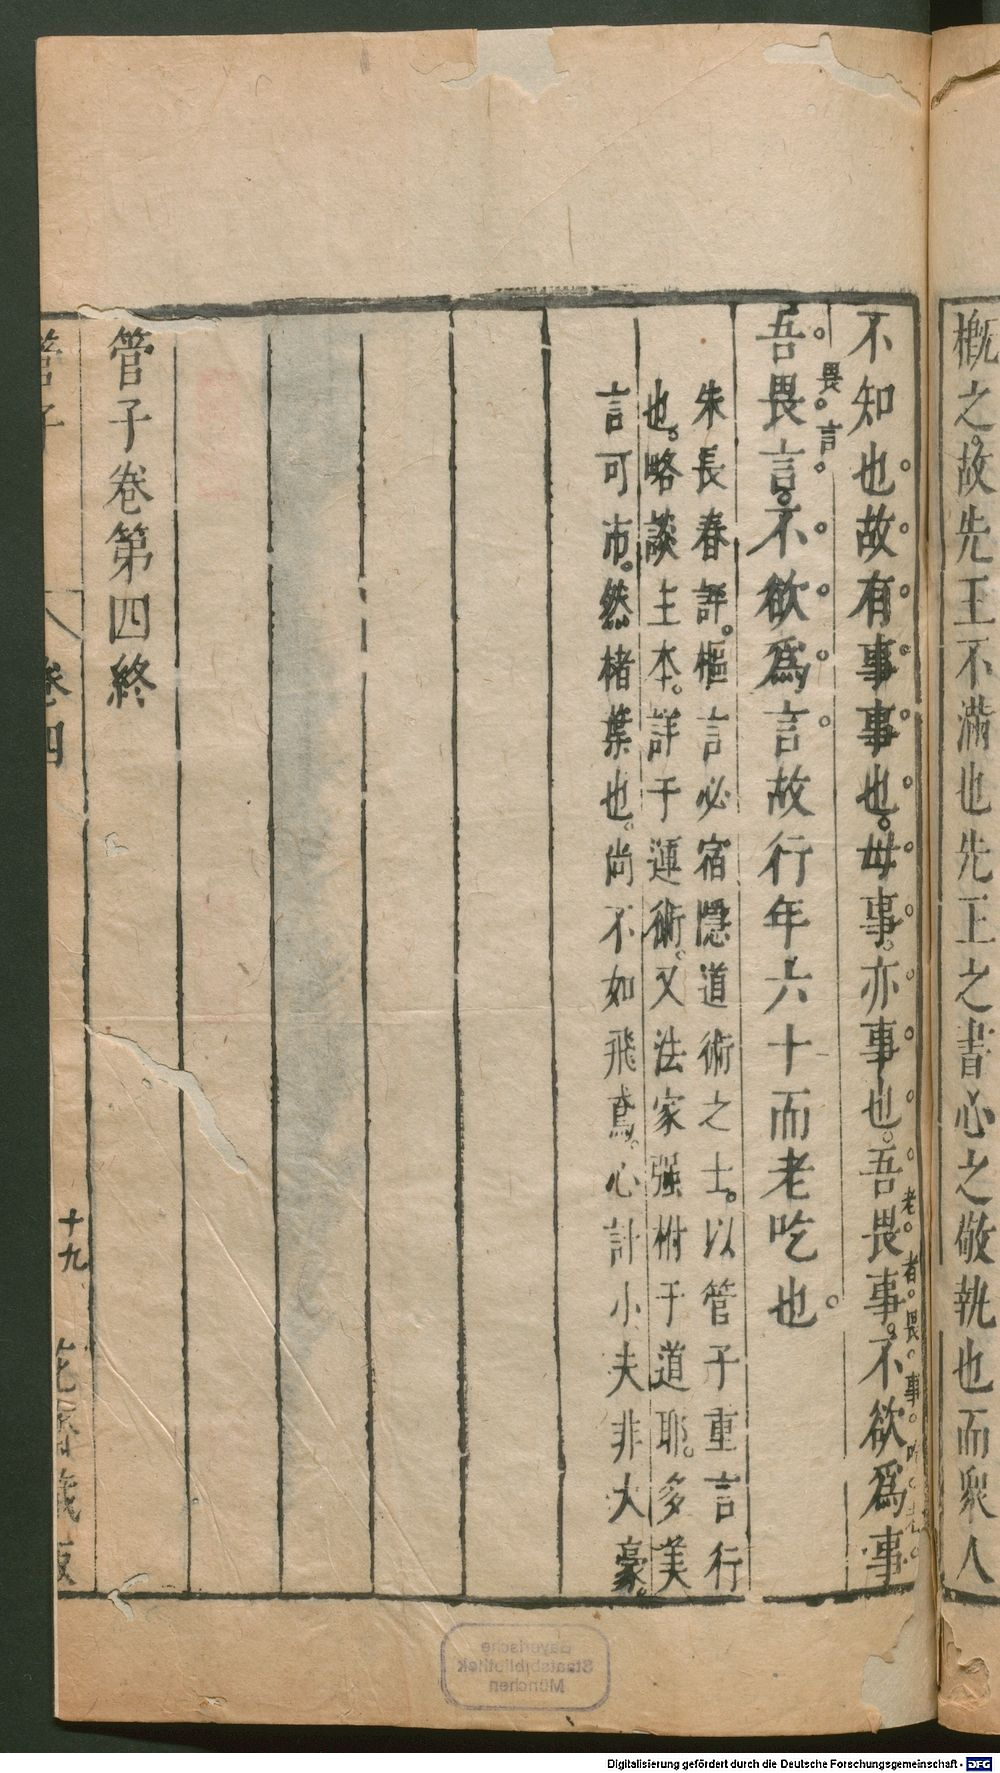 概之。故先王不滿也先王之書心之敬執也而衆人
不知也故有事事也。毋事。亦事也。吾畏事。不欲爲事
老者畏事
吾畏言。不欲爲言故行年六十而老吃也
畏言
朱長春評。樞言必宿隱道術之士。以管子重言行
也。略談主本。詳于運術。又法家强柎于道耶。多美
言可市。然楮葉也。尚不如飛鳶。心計小夫非大豪。
管子卷第四終
管子
卷四
十九
花齋藏板
Bayerische
Staatsbibliothek
München
Digitalisierung gefördert durch die Deutsche Forschungsgemeinschaft - DFG